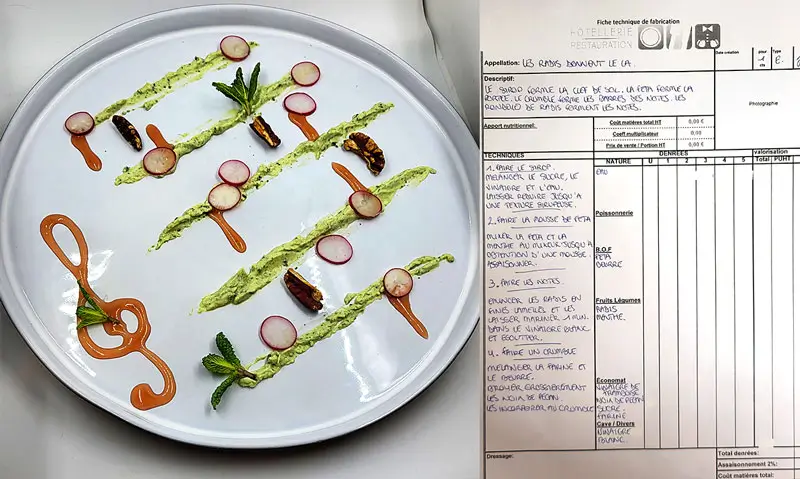 Fiche technique de fabrication
HOTELLERIE
RESTAURATION
Date création
pour
Type
1
E.
cts
Appellation: LES RADIS DONNENT LE LA.
Descriptif:
LE SIROP FORME LA CLEF DE SOL, LA FETA FORME LA
PORTÉE, LE CRUMBLE FORME LES BARRES DES NOTES. LES
RONDELLES DE RADIS FORMENT LES NOTES.
Photographie
Apport nutritionnel:
Coût matières total HT 0,00 €
Coeff multiplicateur 0,00
Prix de vente / Portion HT 0,00 €
TECHNIQUES
DENRÉES
valorisation
NATURE U 1 2 3 4 5 Total PUHT
1. FAIRE LE SIROP.
MELANGER LE SUCRE, LE
VINAIGRE ET L'EAU.
LAISSER REDUIRE JUSQU'A
UNE TEXTURE SIRUPEUSE.
2. FAIRE LA MOUSSE DE FETA
MIXER LA FETA ET LA
MENTHE AU MIXEUR JUSQU'A
OBTENTION D'UNE MOUSSE.
ASSAISONNER.
3. FAIRE LES NOTES.
EMINCER LES RADIS EN
FINES LAMELLES ET LES
LAISSER MARINER 1 MIN.
DANS LE VINAIGRE BLANC
ET EGOUTTER.
4. FAIRE UN CRUMBLE
MELANGER LA FARINE ET
LE BEURRE.
BROYER GROSSIEREMENT
LES NOIX DE PÉCAN.
LES INCORPORER AU CRUMBLE
EAU
Poissonnerie
B.O.F
FETA
BEURRE
Fruits Légumes
RADIS
MENTHE.
Economat
VINAIGRE DE
FRAMBOISE
NOIX DE PÉCAN
SUCRE
FARINE
Cave / Divers
VINAIGRE
BLANC.
Dressage:
Total denrées:
Assaisonnement 2%:
Coût matières total: